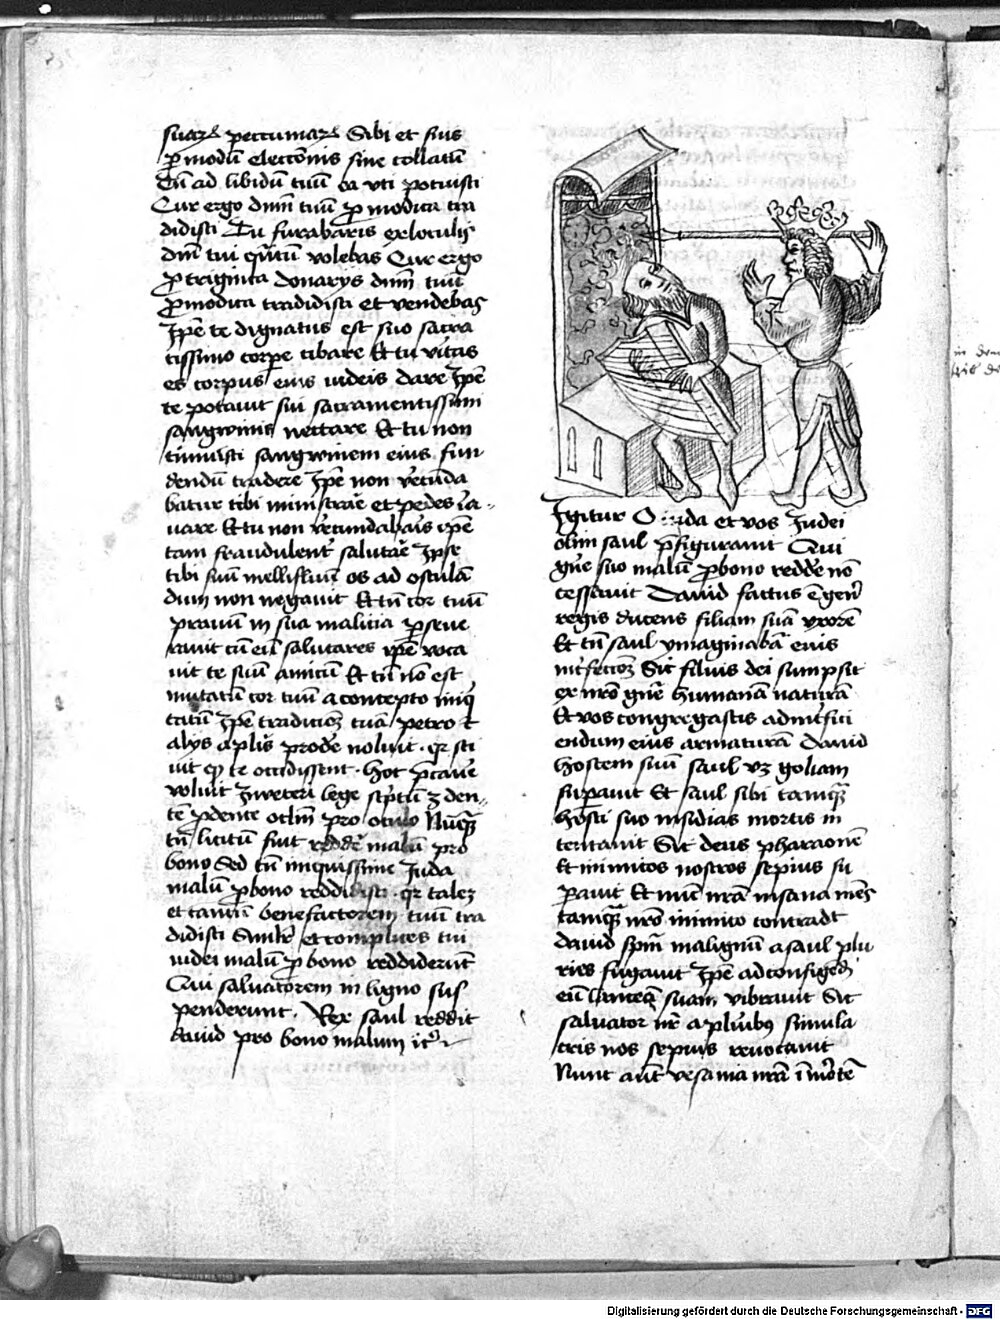 suarum peccuniarum Sibi et suis
p modū elecciōnis siue collatū
Cū ad libidinē tuā ea vti potuisti
Cur ergo dnm̄ tuū p modica tra
didisti Tu furabaris ex loculis
dnī tui q̄ntū volebas Cur ergo
p triginta denarys dnm̄ tuū
p modica tradidisti et vendebas
Ipe te dignatus est suo sacra
tissimo corpe cibare Et tu
es corpus eius iudeis dare Ipe
te potauit sui sacramentissimi
sangwinis nectare Et tu non
timuisti sangwinem eius fun
dendū tradere Ipe non verecunda
batur tibi ministrare et pedes la
uare Et tu non verecundabaris ipm̄
tam fraudulent̄ salutare Ipse
tibi suū mellifluū os ad osculā
dum non negauit Et tn̄ cor tuū
prauū in sua malicia pseue
rauit cū eū salutares ipē voca
uit te suū amicū Et tn̄ nō est
mutatū cor tuū a concepto iniq
tatū Ipē tradicioē tuā petro et
alys aplis prodē noluit qr sci
uit q te occidissent hoc p̄caue
voluit In veteri lege scptū est den
tē p dente oclm̄ pro oculo Nūq̄
tn̄ licitū fuit reddere malū pro
bono Sed tn̄ iniquissime Iuda
malū p bono reddidisti qr talez
et tantū benefactorem tuū tra
didisti Simlr̄ et complices tui
iudei malū p bono reddiderūt
Qui saluatorem in ligno sus
penderunt Rex saul reddit
dauid pro bono malum
Igitur O iuda et vos Iudei
olim saul p̄figurauit Qui
gn̄o suo malū p bono reddē nō
cessauit Dauid factus ē gener
regis ducens filiam suā vxorē
Et tn̄ saul ymaginabāt eius
int̄fectōez Sic filius dei sumpsit
ex nrō gn̄e humanā naturā
Et vos congregastis ad int̄fici
endum eius armaturā Dauid
hostem suū saul vz goliam
supauit Et saul sibi tamq̄
hosti suo insidias mortis in
tentauit Sic deus pharaonē
Et inimicos nostros sepius su
pauit Et nūc nrā insana mēs
tamq̄ nrō inimico contradt
dauid spm̄ malignū a saul plu
ries fugauit Ipē ad configēdū
eū lanceā suam vibrauit Sic
saluator nr̄ a plurib9 simula
cris nos sepius reuocauit
Nunc aūt vesania nrā ī mortē
Digitalisierung gefördert durch die Deutsche Forschungsgemeinschaft - DFG